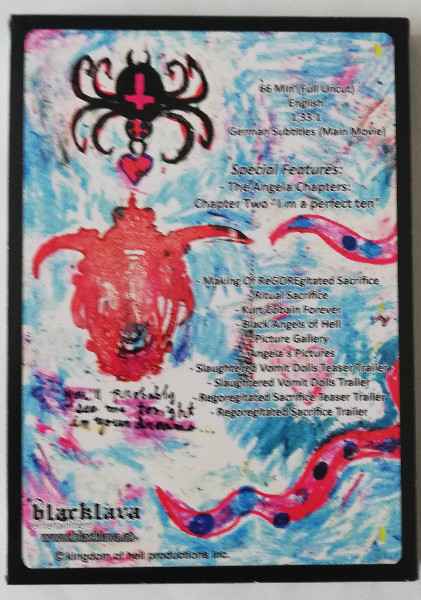 66 Min (Full Uncut)
English
1,33:1
German Subtitles (Main Movie)
Special Features:
- The Angela Chapters:
Chapter Two "I m a perfect ten"
- Making Of ReGOREgitated Sacrifice
- Ritual Sacrifice
- Kurt Cobain Forever
- Black Angels of Hell
- Picture Gallery
- Angela´s Pictures
- Slaughtered Vomit Dolls Teaser Trailer
- Slaughtered Vomit Dolls Trailer
- Regoregitated Sacrifice Teaser Trailer
- Regoregitated Sacrifice Trailer
you'll Probably
see me tonight
in your dreams...
blacklava
entertainment
www.blacklava.at
©kingdom of hell productions inc.